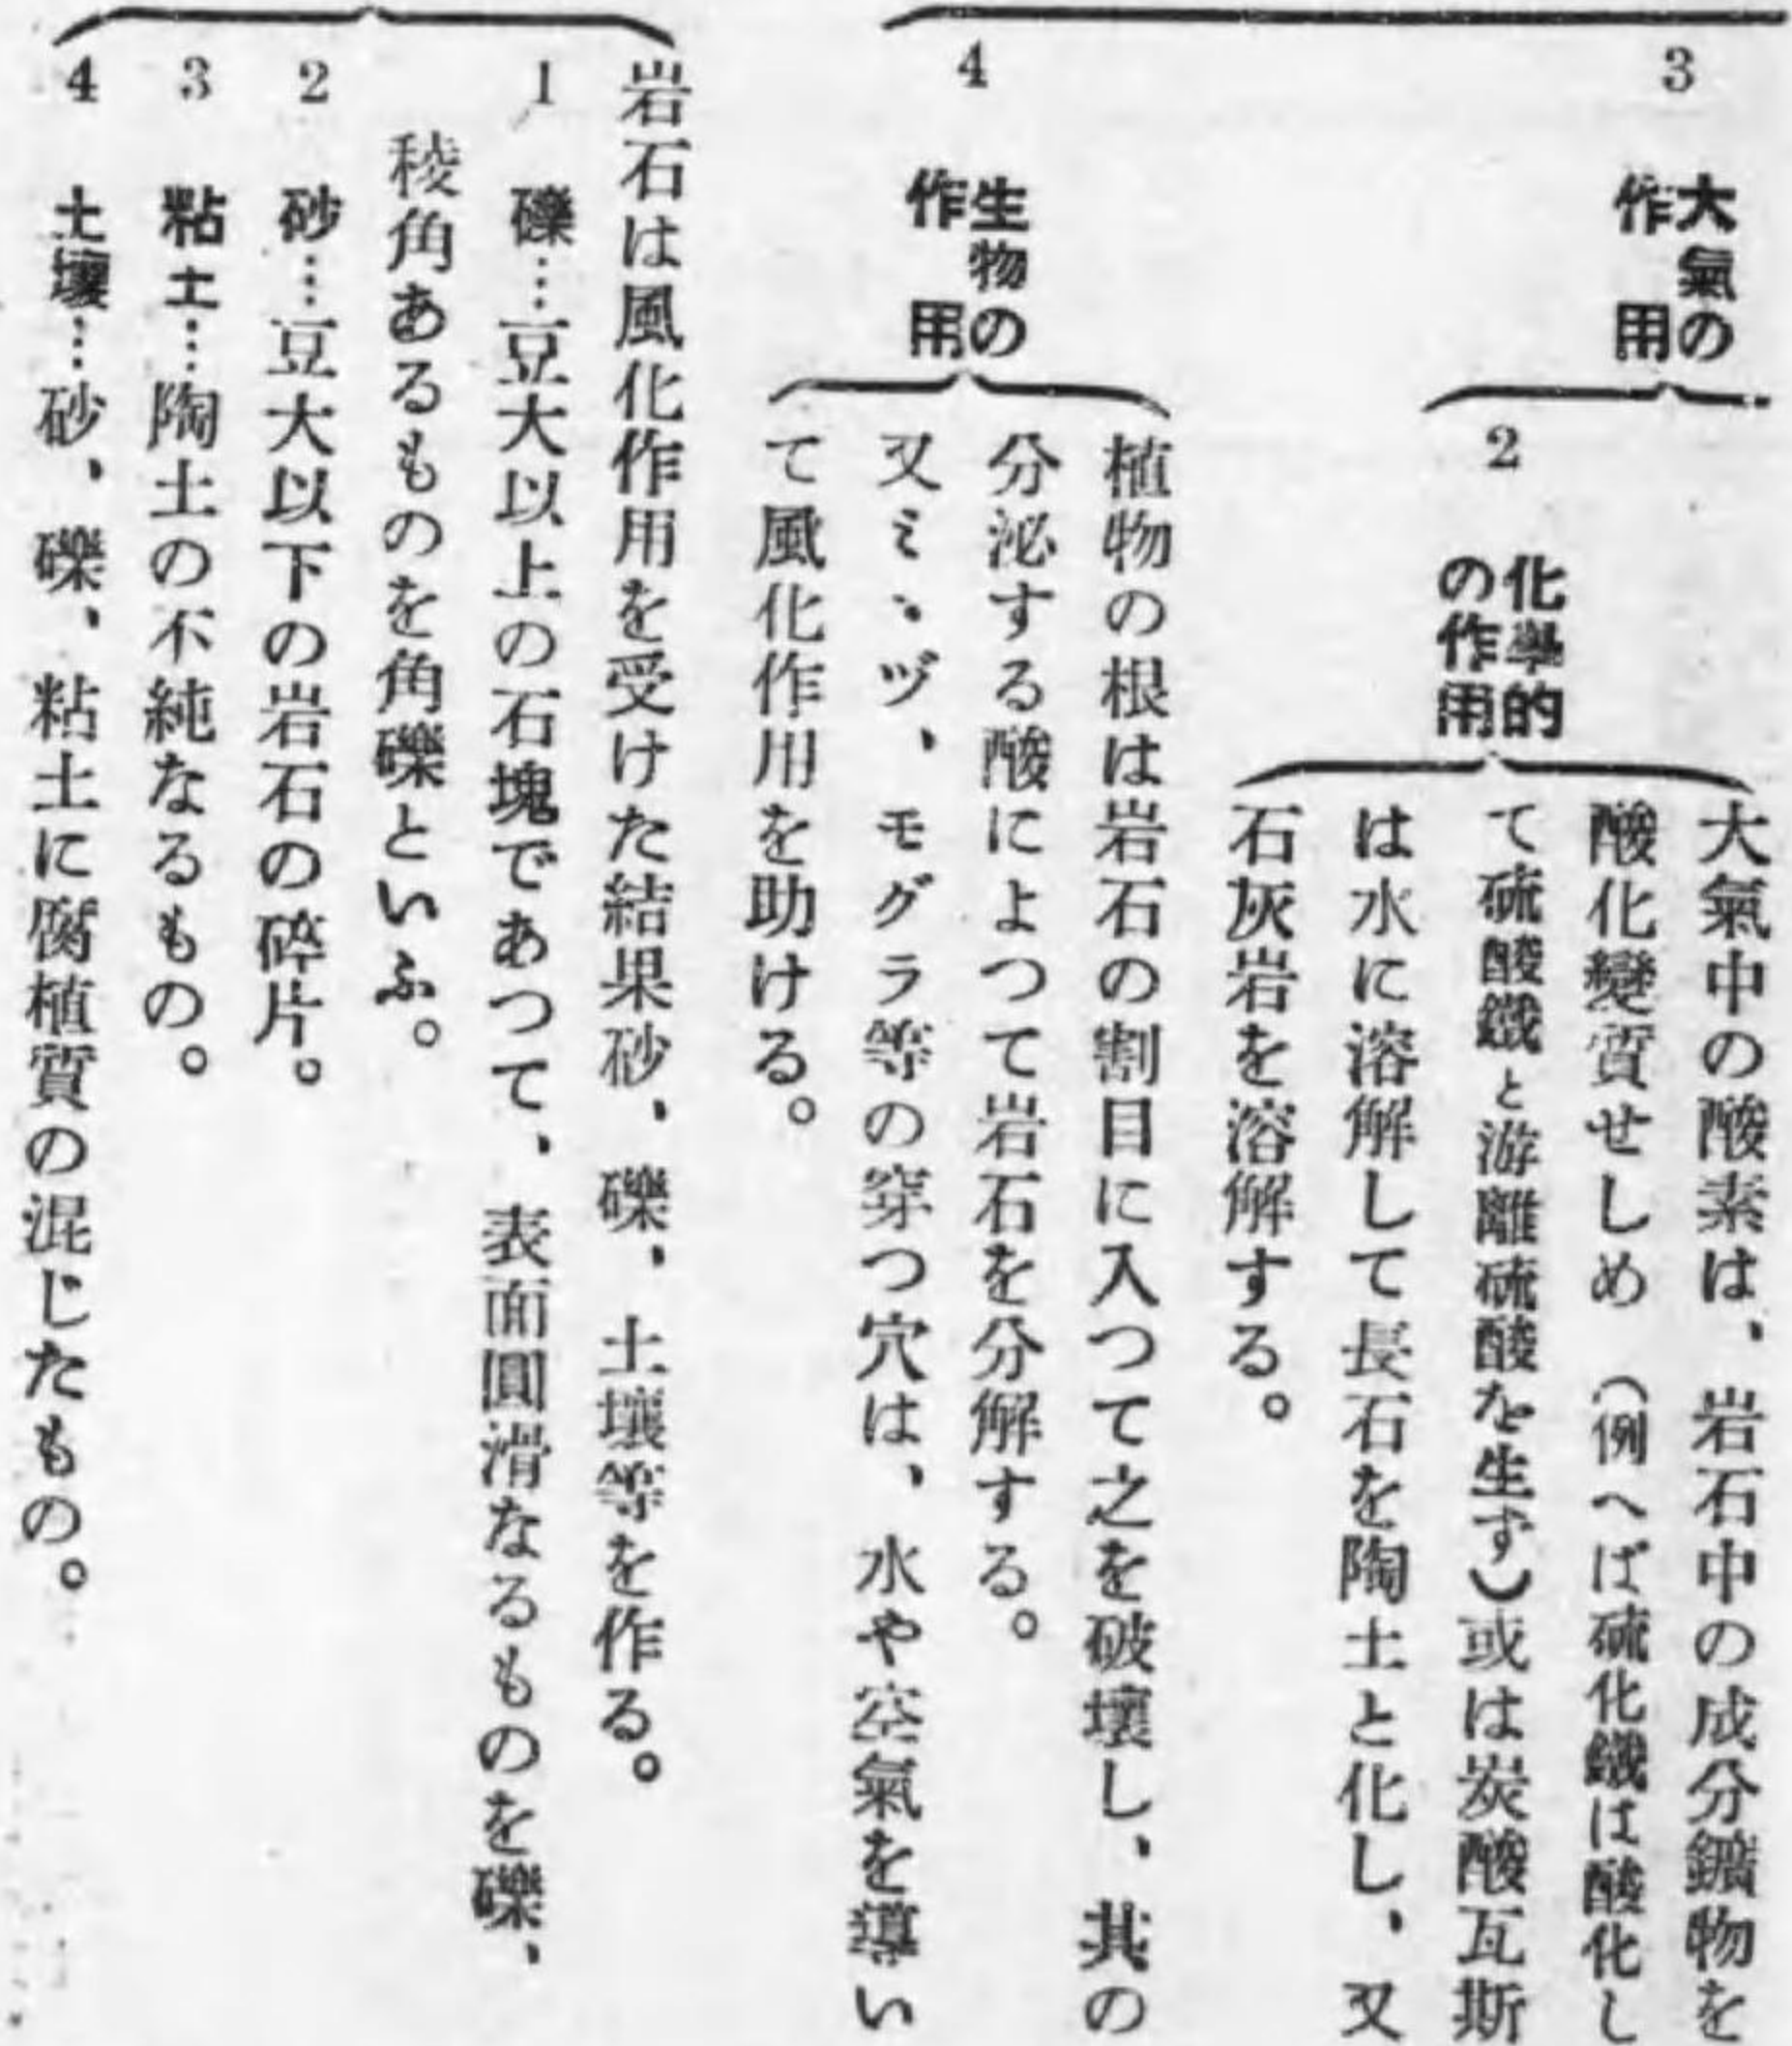 3 大氣の
作用
2 化學的
の作用
大氣中の酸素は、岩石中の成分鑛物を
酸化變質せしめ（例へば硫化鐵は酸化し
て硫酸鐵と游離硫酸を生ず）或は炭酸瓦斯
は水に溶解して長石を陶土と化し、又
石灰岩を溶解する。
4 生物の
作用
植物の根は岩石の割目に入つて之を破壞し、其の
分泌する酸によつて岩石を分解する。
又ミヽヅ、モグラ等の穿つ穴は、水や空氣を導い
て風化作用を助ける。
岩石は風化作用を受けた結果砂、礫、土壤等を作る。
1 礫…豆大以上の石塊であつて、表面圓滑なるものを礫、
稜角あるものを角礫といふ。
2 砂…豆大以下の岩石の碎片。
3 粘土…陶土の不純なるもの。
4 土壤…砂、礫、粘土に腐植質の混じたもの。